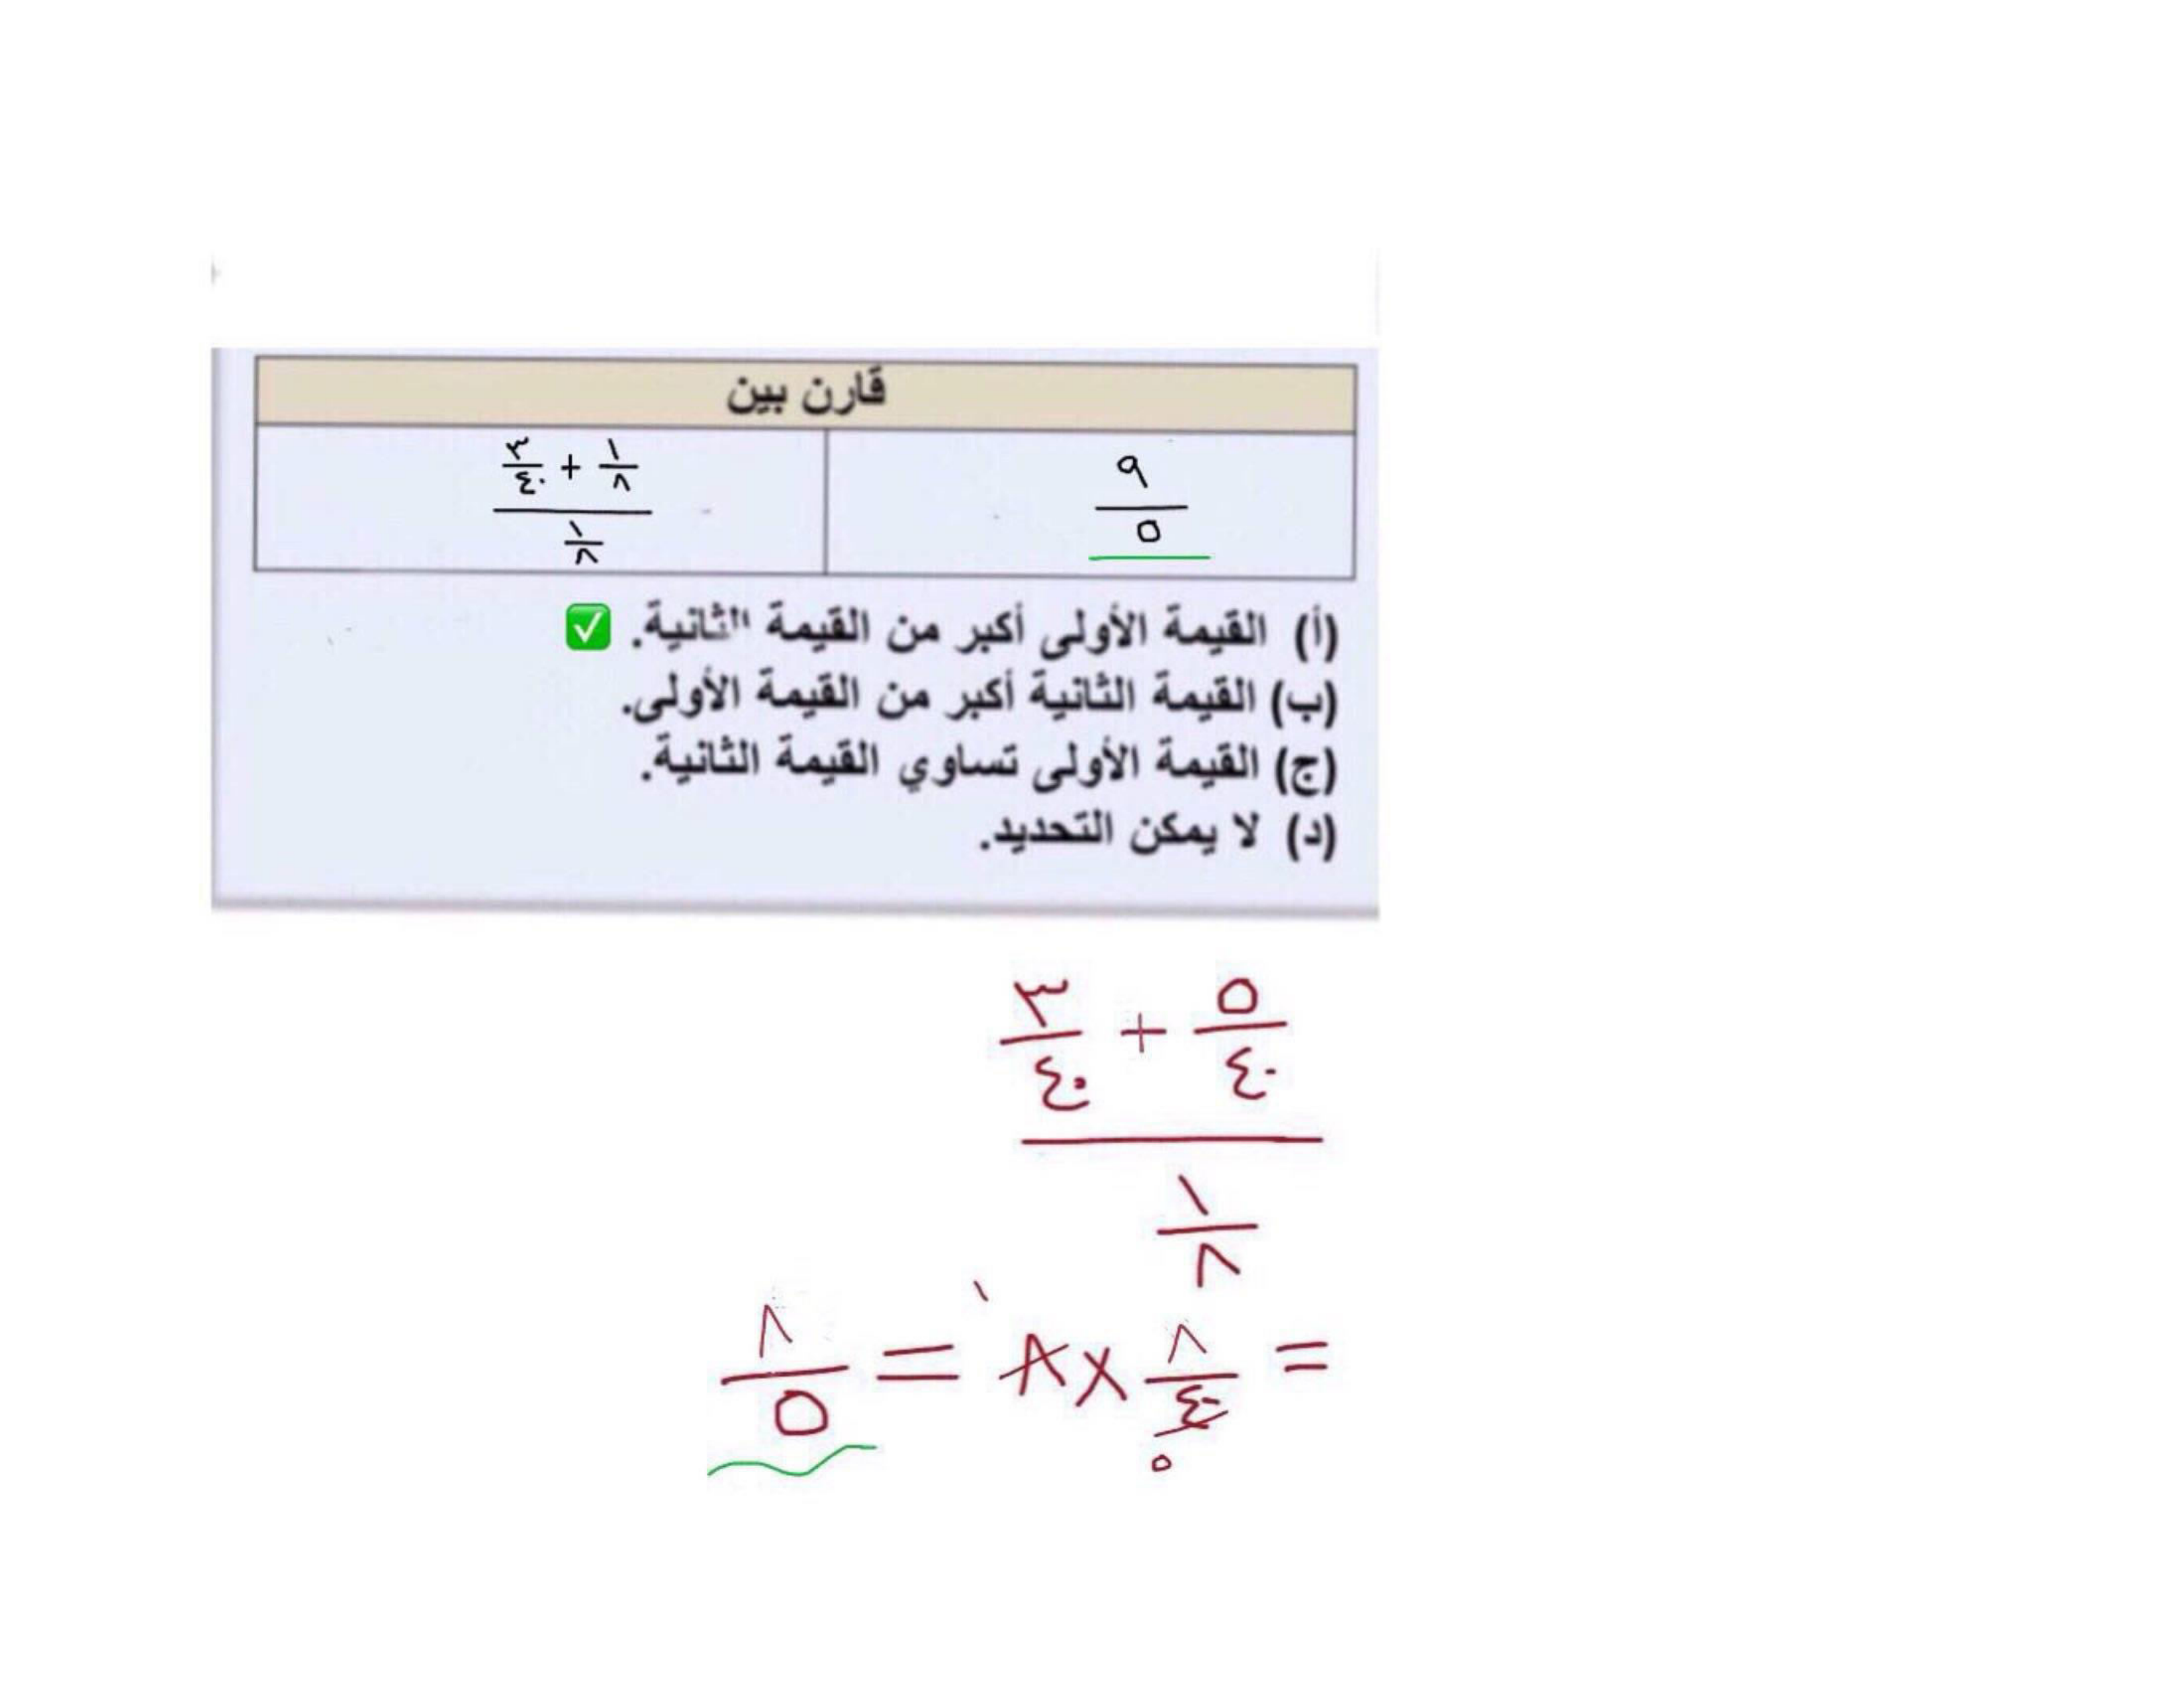 قارن بين
٩/٥
١/٨ + ٣/٤٠
١/٨
(أ) القيمة الأولى أكبر من القيمة الثانية. ✅
(ب) القيمة الثانية أكبر من القيمة الأولى.
(ج) القيمة الأولى تساوي القيمة الثانية.
(د) لا يمكن التحديد.
٥/٤٠ + ٣/٤٠
١/٨
= ٨/٤٠ × ٨ = ٨/٥
١
٥